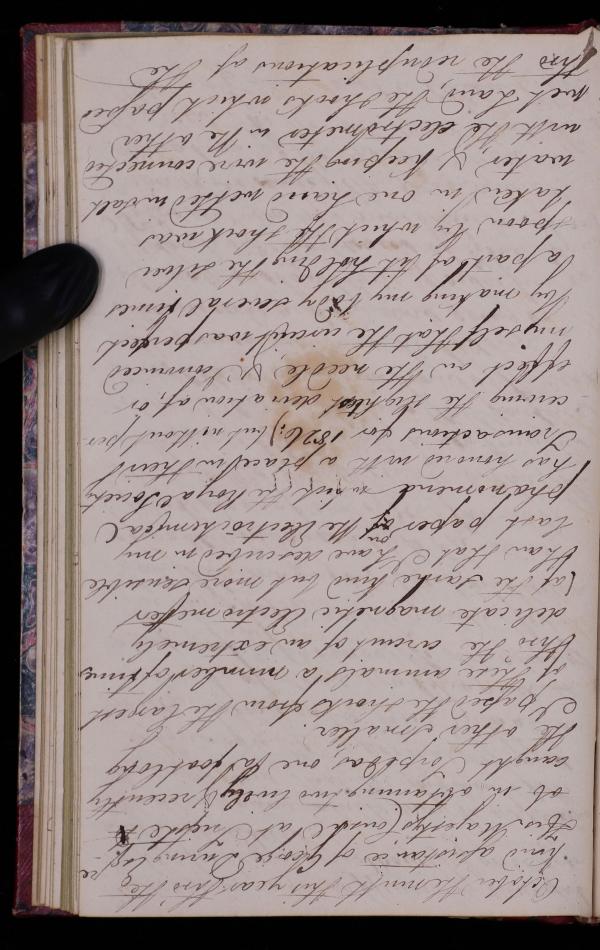 October the ninth this year thro the
kind assistance of George During Esqr
His Majestys Consul at Trieste
ob in obtaining two lively & recently
caught Torpedos, one a foot long
the other smaller.
I passed the shocks from the largest
of these animals a number of times
thro the circuit of an extremely
delicate magnetic Electrometer
(of the same kind but more sensible
than that I have described in my
last paper on the Electrochemical
phænomena which the Royal Society
has honored with a place in their
Transactions for 1826;) but without per-
-ceiving the slightest deviation of, or
effect on the needle, & I convinced
myself that the circuit was perfect
by making my body several times
a part of it holding the silver
spoon by which the shock was
taken in one hand wetted in salt
water, & keeping the wire connected
with the electrometer in the other
wet hand, the shocks which passed
thro the reduplications of the